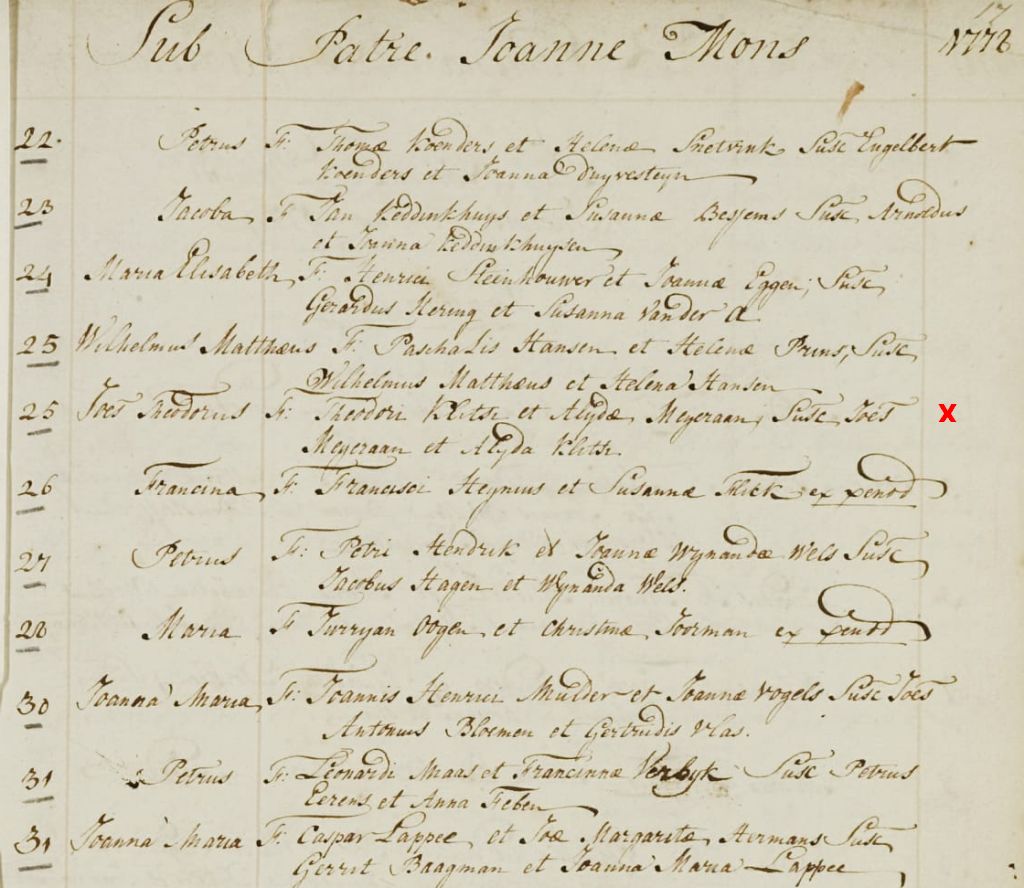 17
Sub Patre Joanne Mons 1772
22. Petrus F: Thomæ Koenders et Helenæ Snetvink Susc Engelbert
Koenders et Joanna Duyvesteyn
23 Jacoba F Jan Keddinkhuys et Susannæ Bessems Susc Arnoldus
et Joanna Keddinkhuysen
24 Maria Elisabeth F: Henrici Steinhouwer et Joannæ Eggen, Susc
Gerardus Hering et Susanna Van der A
25 Wilhelmus Matthæus F: Paschalis Hansen et Helenæ Prins, Susc
Wilhelmus Matthæus et Helena Hansen
25 Joës Theodorus F: Theodori Klitsr et Alydæ Meyeraan, Susc Joës X
Meyeraan et Alyda Klitsr.
26 Francina F: Francisci Heynius et Susannæ Flick ex penod
27 Petrus F: Petri Hendrik et Joannæ Wynandæ Wels Susc
Jacobus Hagen et Wynanda Wels.
28 Maria F Jurryan Oogen et Christinæ Soorman ex penod
30 Joanna Maria F: Joannis Henrici Mulder et Joannæ Vogels Susc Joës
Antonius Bloemen et Gertrudis Vlas.
31 Petrus F: Leonardi Maas et Francinnæ Verbyk Susc Petrus
Eerens et Anna Feben
31 Joanna Maria F: Caspar Lappee et Joæ Margaritæ Hermans Susc
Gerrit Baagman et Joanna Maria Lappee